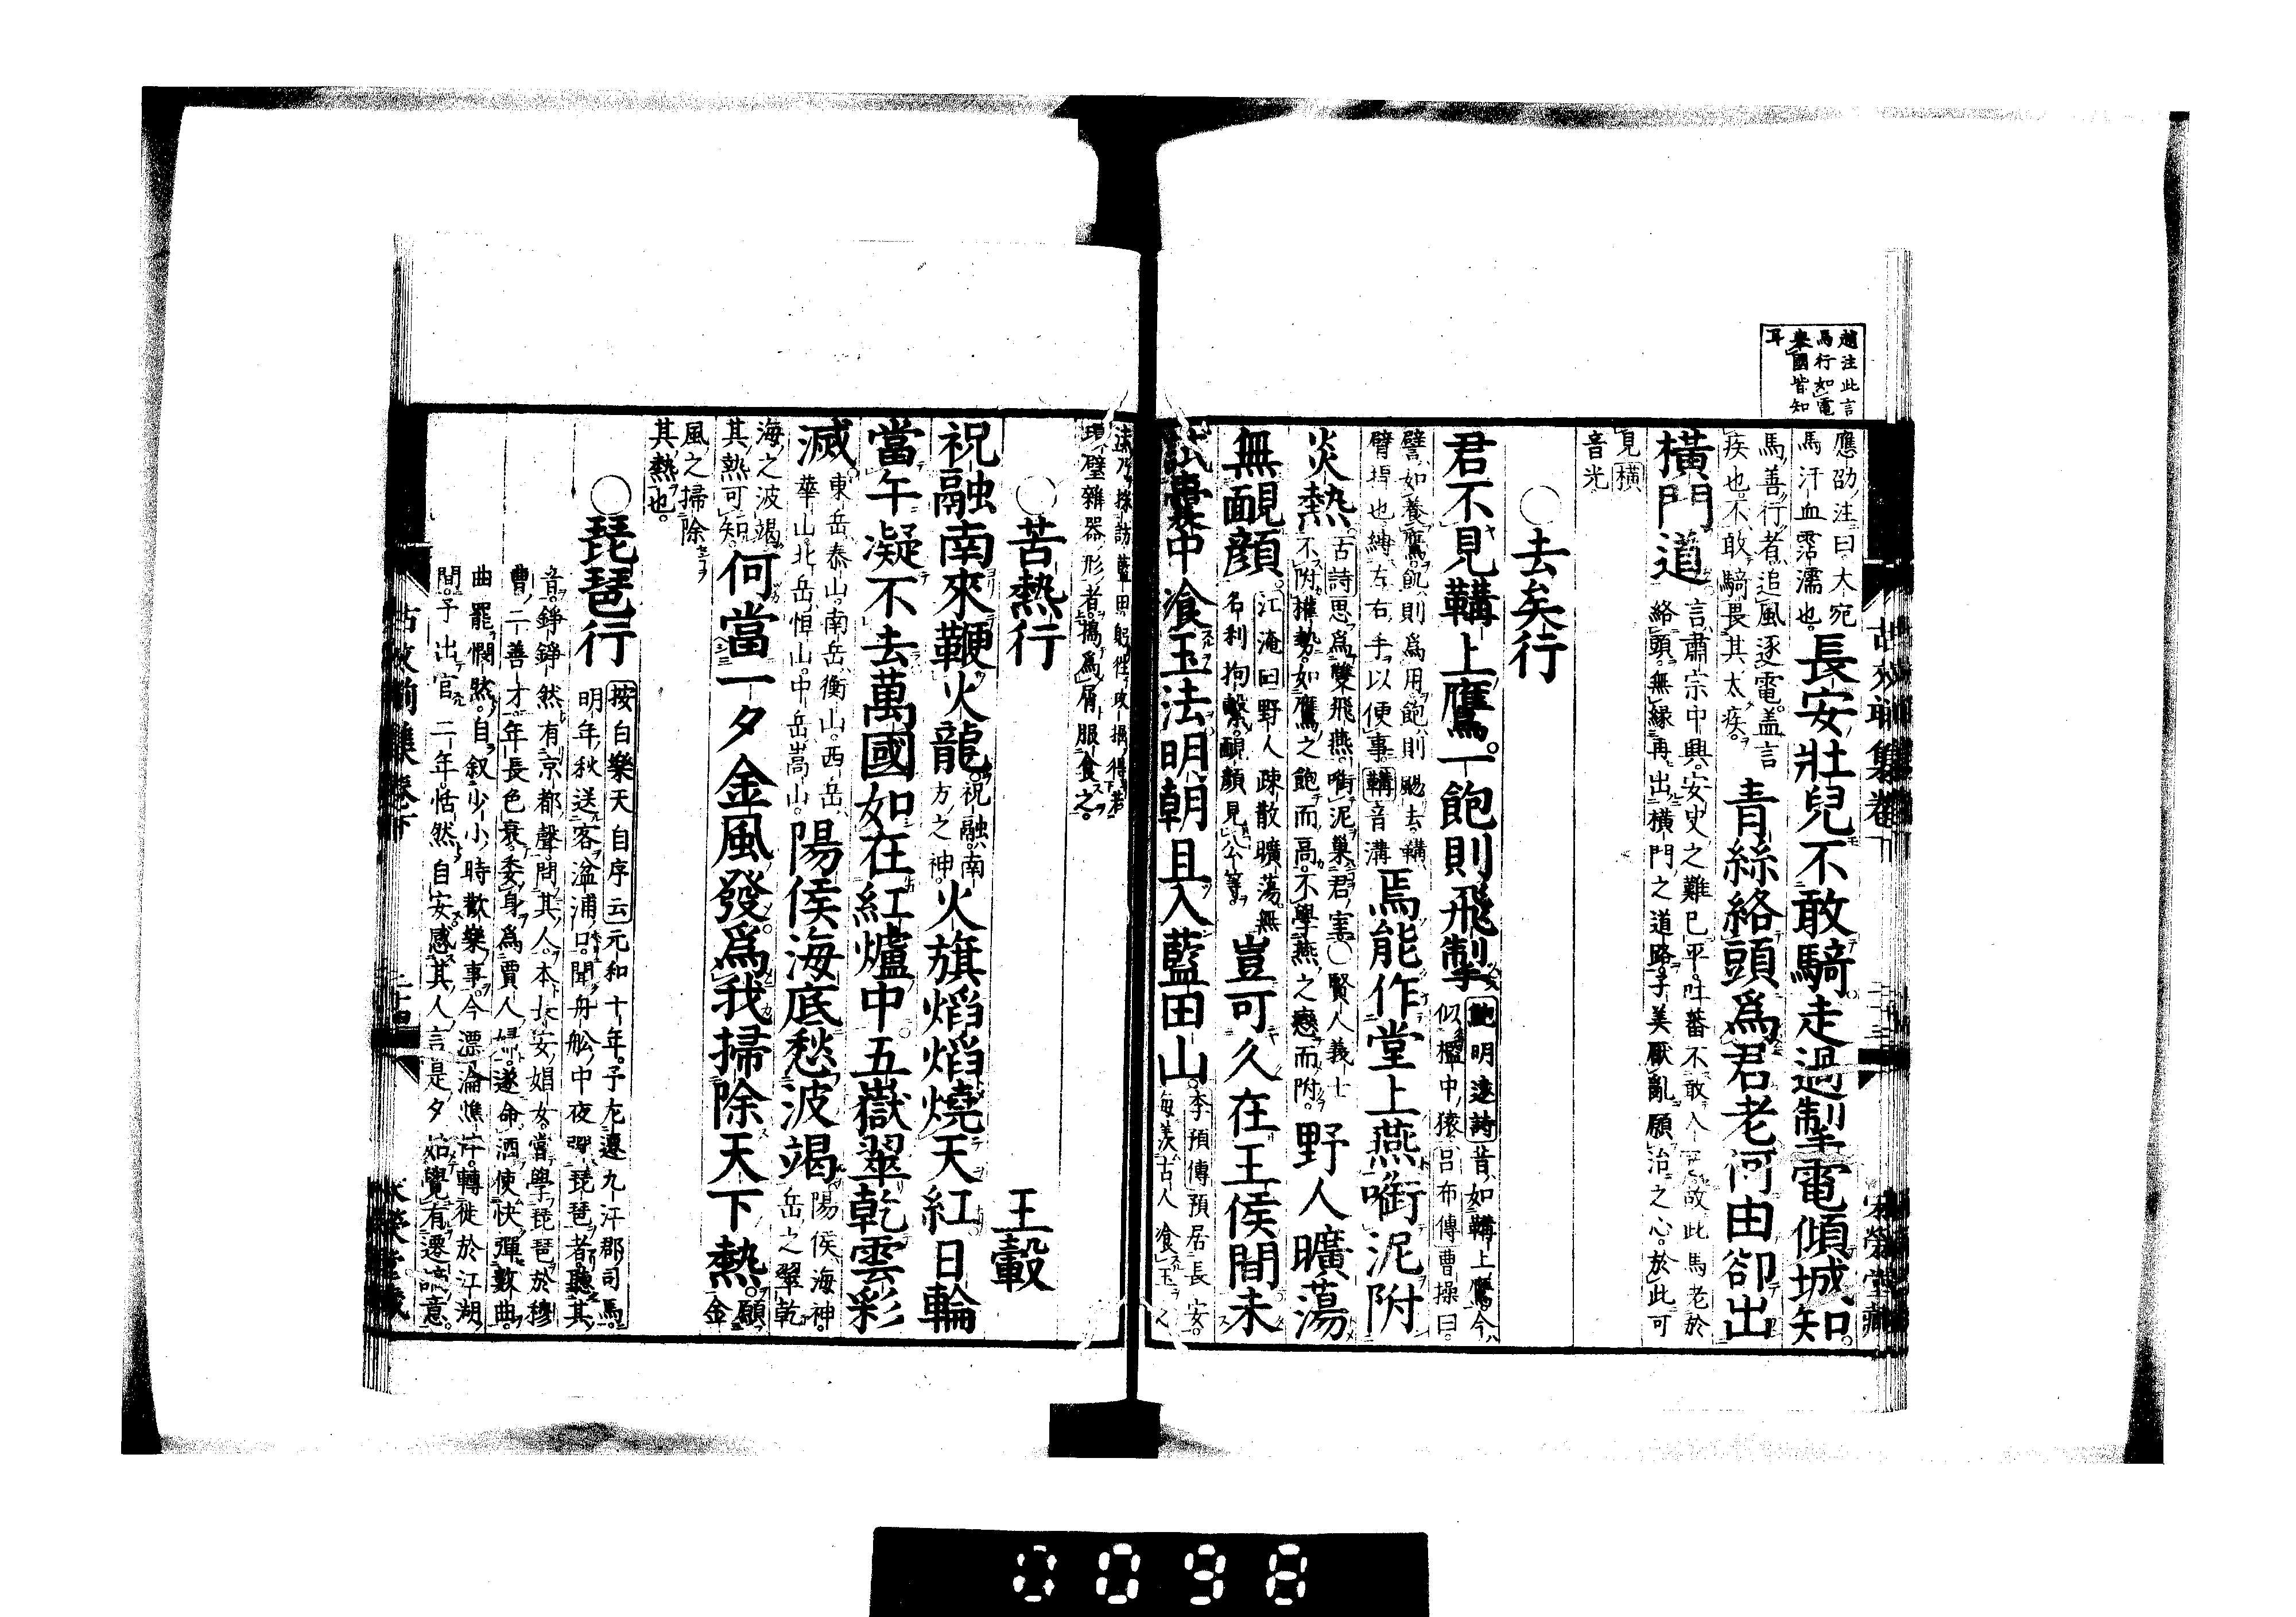 趙注此言
馬行如電
舉國皆知
耳
應劭注曰大宛
馬汗血霑濡也
長安壯兒不敢騎走過掣電傾城知
馬善行者追風逐電蓋言
疾也不敢騎畏其太疾
青絲絡頭爲君老何由卻出
橫門道
言肅宗中興安史之難已平吐蕃不敢入故此馬老於
絡頭無緣再出橫門之道路子美厭亂願治之心於此可
見橫
音光
○去矣行
君不見鞲上鷹一飽則飛掣
鮑明遠詩昔如鞲上鷹今
似檻中猿呂布傳曹操曰
譬如養鷹飢則爲用飽則颺去鞲
臂捍也縛左右手以便事鞲音溝
焉能作堂上燕啣泥附
炎熱
古詩思爲雙飛燕啣泥巢君室○賢人義士
不附權勢如鷹之飽而高不學燕之戀而附
野人曠蕩
無靦顏
江淹曰野人疎散曠蕩無
名利拘繫靦顏見八公等
豈可久在王侯間未
試囊中飡玉法明朝且入藍田山
李預傳預居長安
每羨古人飡玉之
法乃採訪藍田躬往攻掘得若
環璧雜器形者搗爲屑服食之
○苦熱行
王轂
祝融南來鞭火龍
祝融南
方之神
火旗焰焰燒天紅日輪
當午凝不去萬國如在紅爐中五嶽翠乾雲彩
滅
東岳泰山南岳衡山西岳
華山北岳恒山中岳嵩山
陽侯海底愁波竭
陽侯海神
岳之翠乾
海之波竭
其熱可知
何當一夕金風發爲我掃除天下熱
願
金
風之掃除
其熱也
○琵琶行
按白樂天自序云元和十年予左遷九江郡司馬
明年秋送客湓浦口聞舟舩中夜彈琵琶者聽其
音錚錚然有京都聲問其人本長安娼女嘗學琵琶於穆
曹二善才年長色衰委身爲賈人婦遂命酒使快彈數曲
曲罷憫然自叙少小時歡樂事今漂淪憔悴轉徙於江湖
間予出官二年恬然自安感其人言是夕始覺有遷謫意
古文前集卷下
二十四
0098